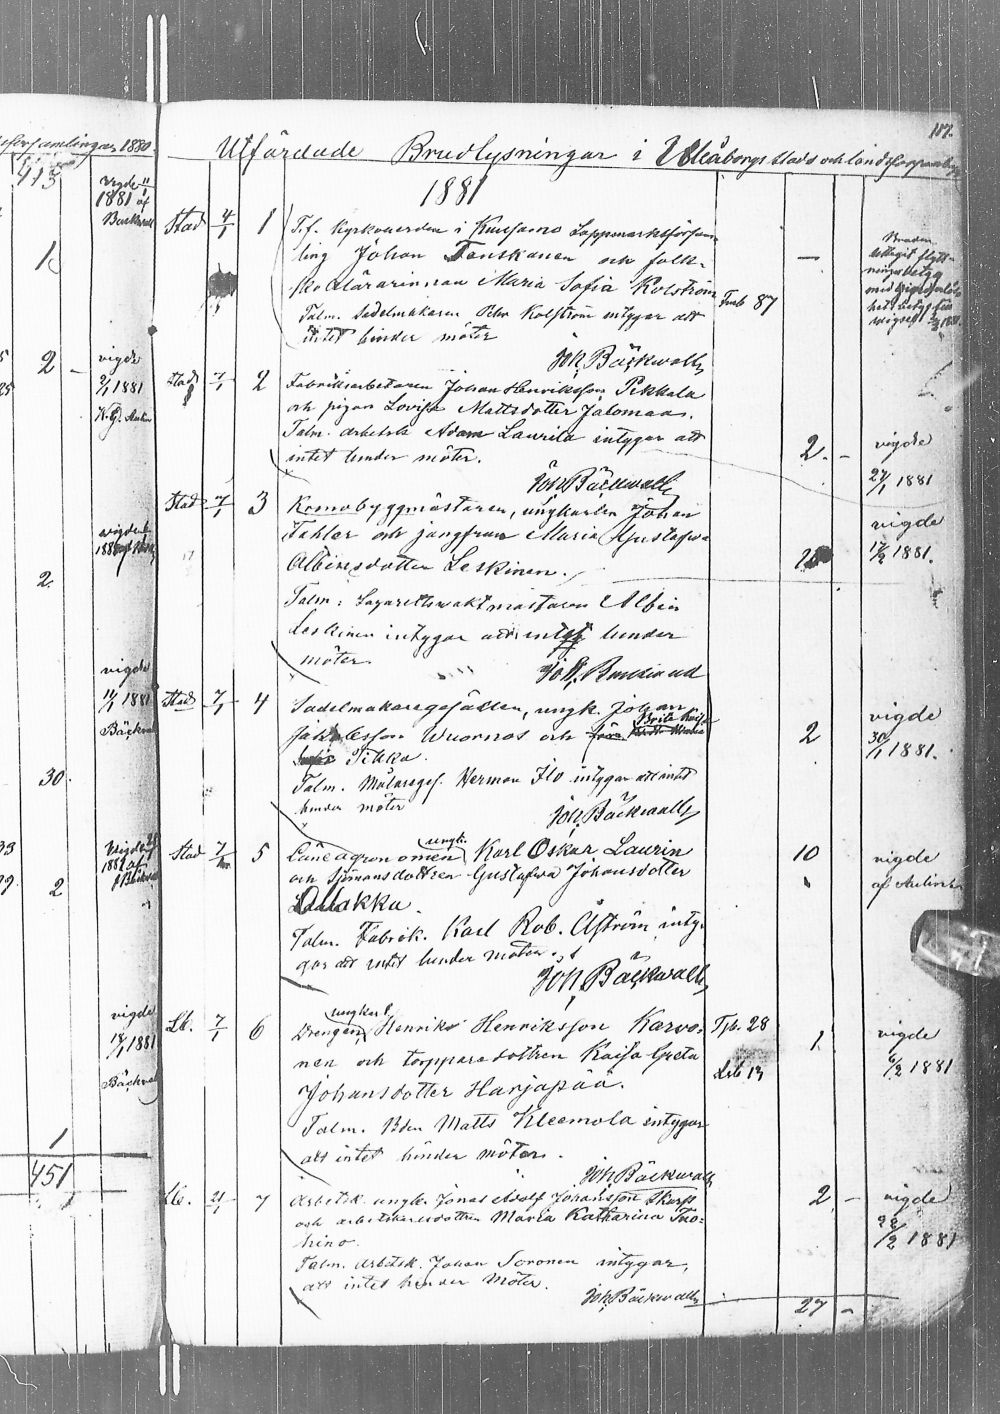 församlingar 1880.
413
vigde 11/1
1881 af
Bäckwall
1
2 -
vigde
9/1 1881
2
vigde
1881
Bäckwall
30
2
vigde
1881
Bäckwall
1
451
117.
Utfärdade Brudlysningar i Uleåborgs stads och landsförsamling
1881
Stad 4/1 1 T.f. Kyrkoherden i Kuusamo Lappmarksförsam-
ling Johan Tenskanen och folk-
skolärarinnan Maria Sofia Kolström Tmb 87
Talm. Sadelmakaren Petter Kolström intygar att
intet hinder möter
Joh. Bäckwall
—
Bruden
uttagit flytt-
ningsbetyg
med
Stad 7/1 2 Fabriksarbetaren Johan Henriksson Pikkala
och pigan Lovisa Mattsdotter Jalomaa.
Talm. arbetsk Adam Laurila intygar att
intet hinder möter.
Joh Bäckwall
2. -
vigde
27/1 1881
Stad 7/1 3 Kronobyggmästaren, ungkarlen Johan
Tahler och jungfrun Maria Gustafva
Albinsdotter Leskinen.
Talm: Lazarettsvaktmästaren Albin
Leskinen intygar att intet hinder
möter.
Joh.
vigde
17/2 1881.
Stad 7/1 4 Sadelmakaregesällen, ungk. Johan
Jakobsson Wuornos och Brita Kajsa
Pikka.
Talm. Målareges. Herman Ilo intygar att intet
hinder möter
Joh. Bäckwall
2
vigde
30/1 1881.
Stad 7/1 5 Länsagronomen ungk. Karl Oskar Laurin
och Sjömansdottren Gustafva Johansdotter
Allakku.
Talm. Fabrik. Karl Rob. Åström inty-
gar att intet hinder möter.
Joh Bäckwall
10
vigde
af Aulin
Lb. 7/1 6 Drengen, ungkarl Henrik Henriksson Karvo-
nen och torparedottren Kaisa Greta
Johansdotter Harjapää.
Talm. Bden Matts Kleemola intygar
att intet hinder möter.
Joh Bäckwall
Tjb. 28
Lrb 13
1
vigde
6/2 1881
Lb. 21/1 7 Arbetsk. ungk. Jonas Adolf Johansson Skarp
och arbetskarlsdottren Maria Katharina Tuo-
hino.
Talm. arbetsk. Johan Soronen intygar,
att intet hinder möter.
Joh. Bäckwall
2 -
vigde
28/2 1881
27 -